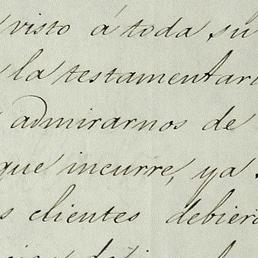 visto á toda su
la testamentari
admirarnos de
que incurre, ya
s clientes debiero